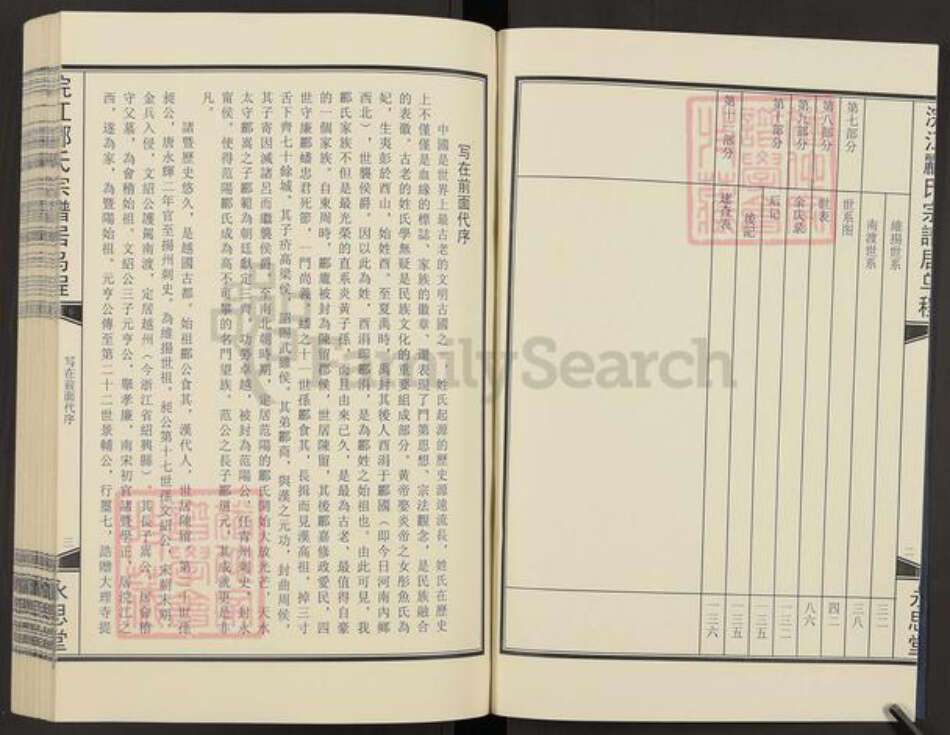 維揚世系
三二
南渡世系
第七部分
世系图
三八
第八部分
世表
四二
第九部分
八六
第十部分
后记
一三二
後記
一三五
第十一部分
一三六
永思堂
二
FamilySearch
写在前面代序
中國是世界上最古老的文明古國之一，姓氏起源的歷史源遠流長，姓氏在歷史
上不僅僅是血緣的標誌、家族的徽章，還表現了門第思想、宗法觀念，是民族融合
的表徵。古老的姓氏學無疑是民族文化的重要組成部分。黃帝娶炎帝之女彤魚氏為
妃，生夷彭於酉山，始姓酉。至夏禹時，禹封其後人酉涓于酈國（即今日河南內鄉
酉北），世襲侯爵，因以此為姓，酉涓即酈涓，是為酈姓之始祖也。由此可見，我
酈氏家族不但是最光榮的直系炎黃子孫，而且由來已久，是最為古老、最值得自豪
的一個家族。自東周時，酈廬被封為陳留郡侯，世居陳留，其後酈嘉修政愛民，四
世守廉酈蟠忠君死節，一門尚義。蟠之十一世係酈食其，長揖而見漢高祖，掉三寸
舌下齊七十餘城，其子疥高梁侯，詔賜武雖侯。其弟酈商，與漢之元功，封曲周侯，
其子寄因滅諸呂而繼襲侯爵。至南北朝時期，定居范陽的酈氏開始大放光芒，天水
太守酈嵩之子酈範為朝廷獻定三齊，功勞卓越，被封為范陽公，任青州刺史，封永
甯侯，使得范陽酈氏成為高不可攀的名門望族。范公之長子酈道元，其成就更是非
凡。
諸暨歷史悠久，是越國古都。始祖酈公食其，漢代人，世居陳留。第二十世係
昶公，唐永輝二年官至揚州刺史。為維揚世祖。昶公第十七世孫文紹公，宋朝末期，
金兵入侵，文紹公護駕南渡，定居越州（今浙江省紹興縣），其長子嵩公，居會稽
守父墓，為會稽始祖。文紹公三子元亨公，舉孝廉，南宋初官諸暨學正，居浣江之
西，遂為家，為暨陽始祖。元亨公傳至第二十二世景輔公，行靨七，誥贈大理寺提
浣江酈氏宗譜居烏程
写在前面代序
三
永思堂